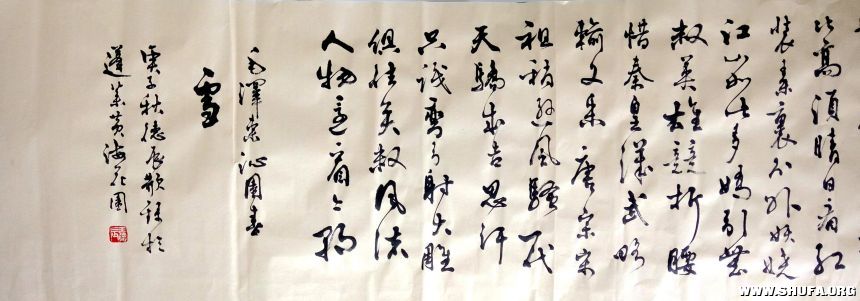 比高須晴日看紅
裝素裹分外妖嬈
江山如此多嬌引無
數英雄競折腰
惜秦皇漢武略
輸文采唐宗宋
祖稍遜風騷一代
天驕成吉思汗
只識彎弓射大雕
俱往矣數風流
人物還看今朝
毛澤東沁園春
雪
庚子秋德辰敬録於
蓬萊黃海花園
WWW.SHUFA.ORG